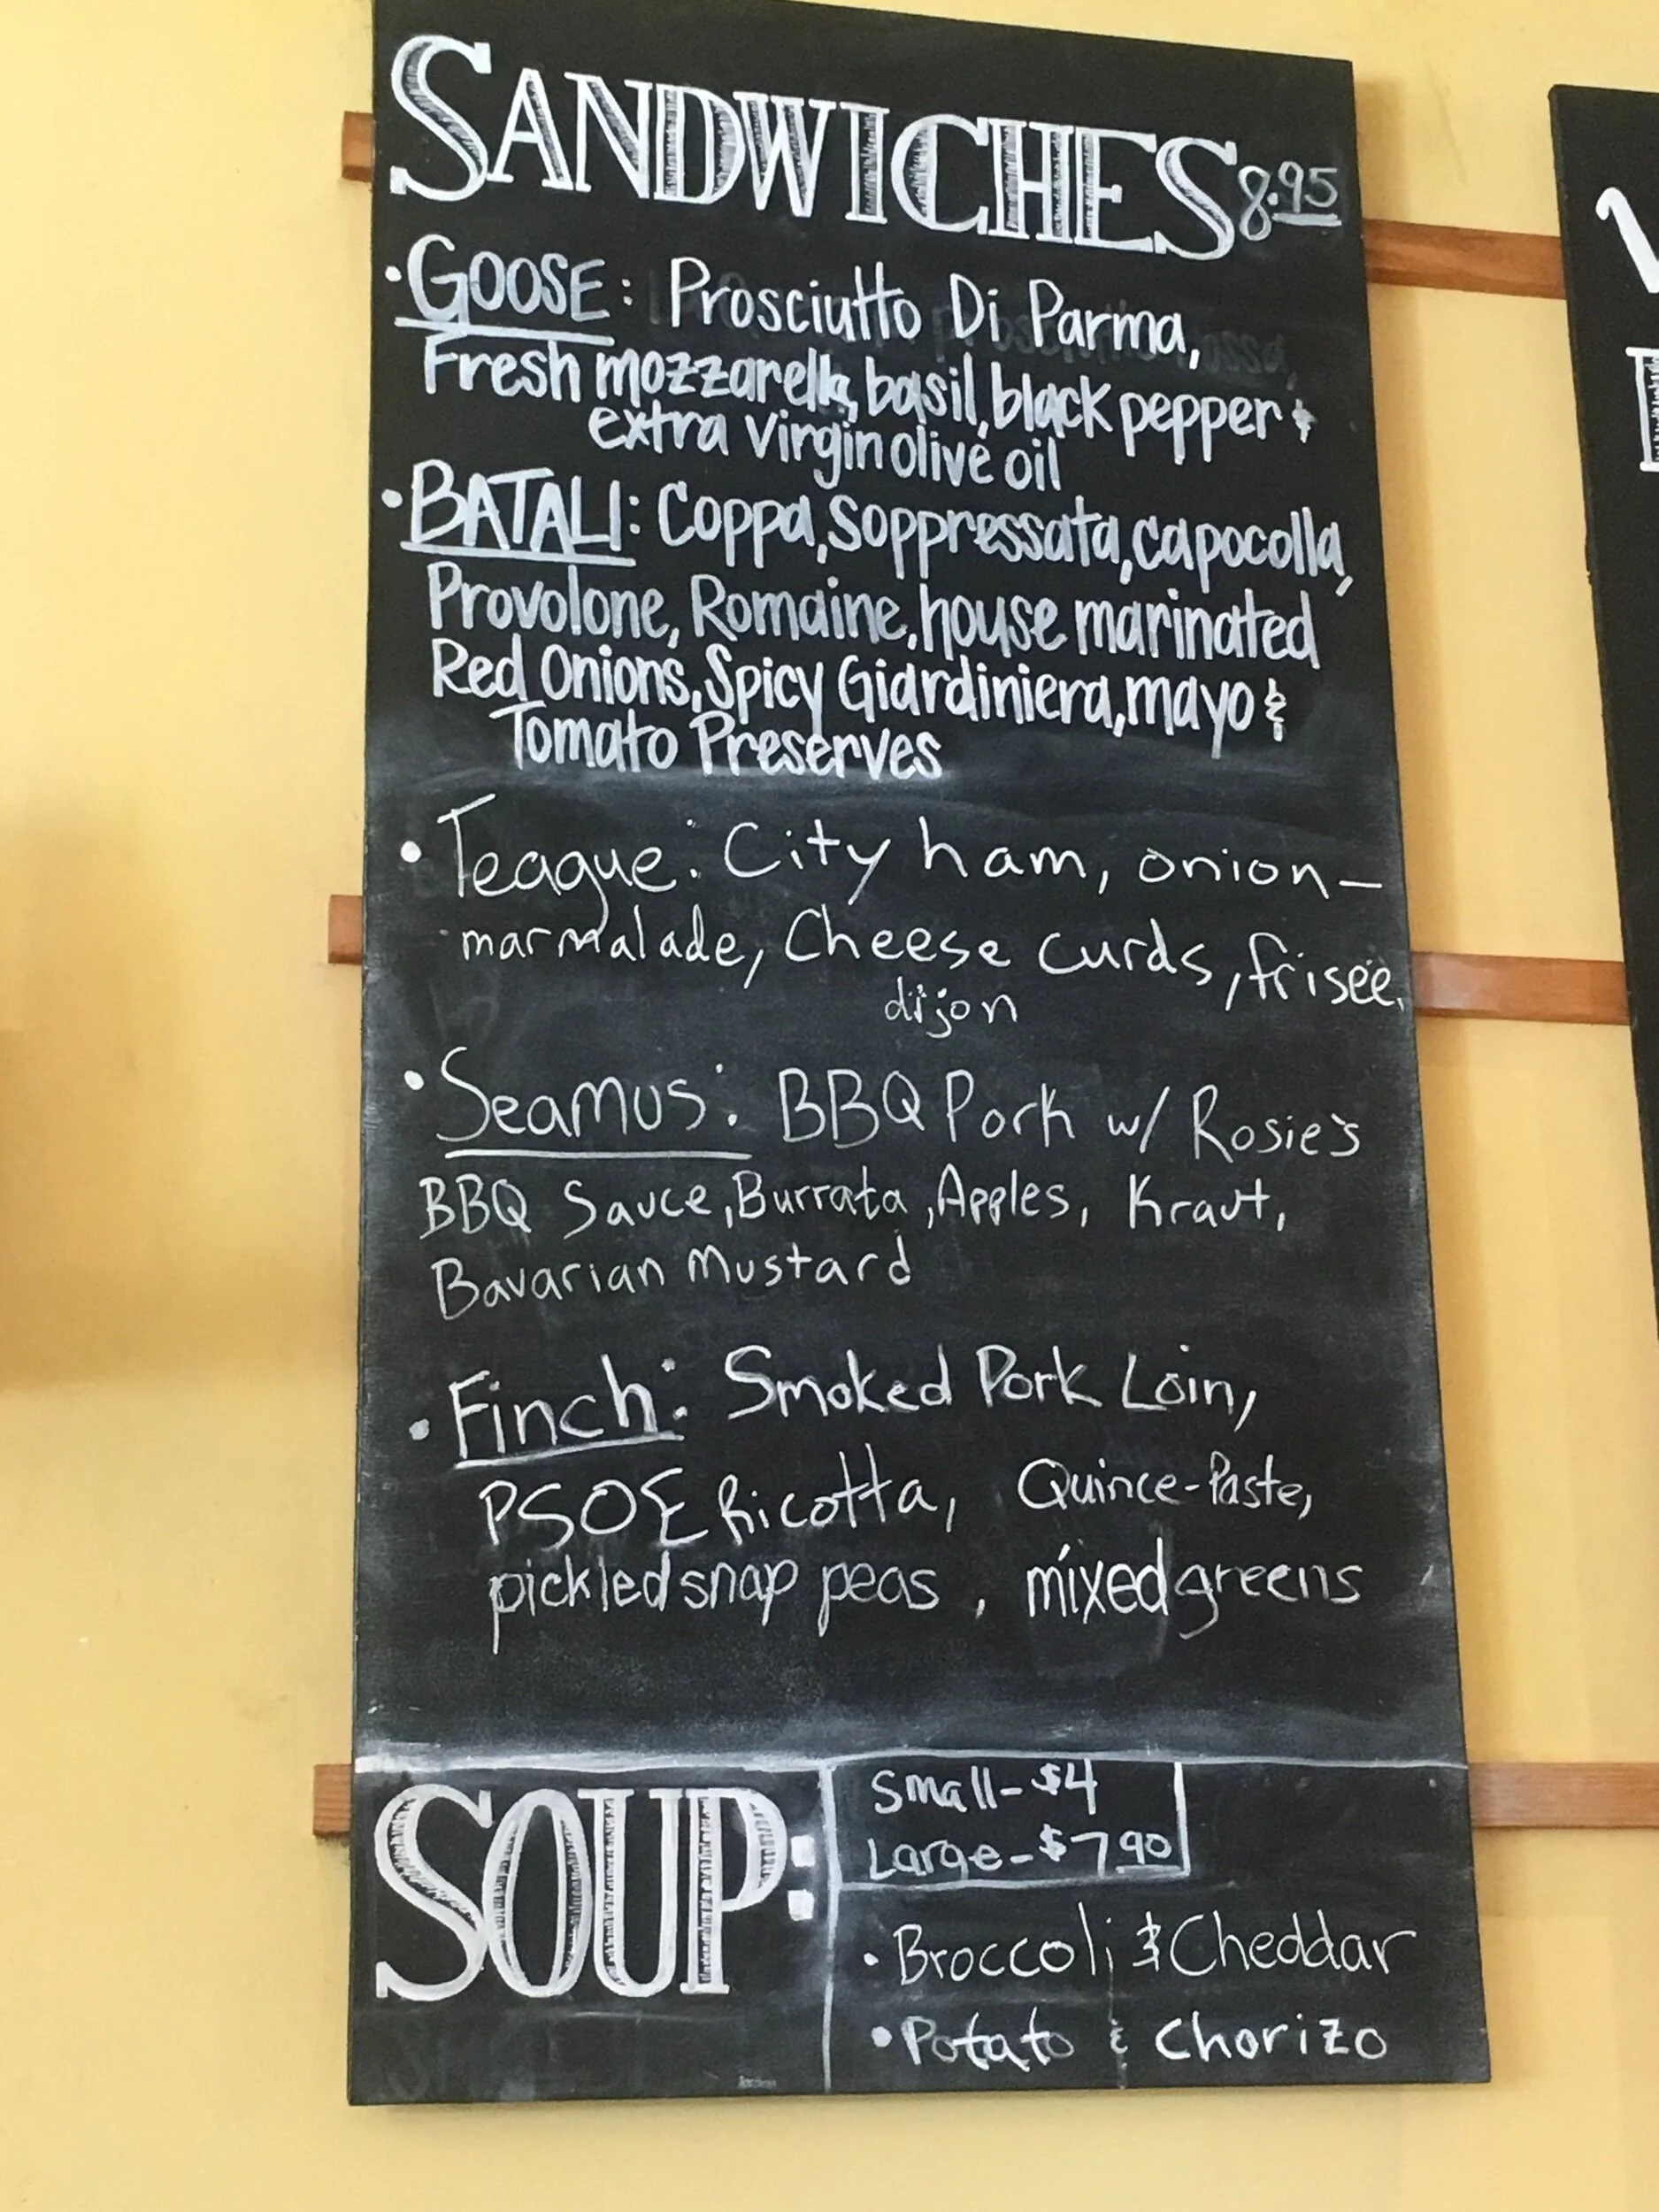 SANDWICHES 8.95
• GOOSE: Prosciutto Di Parma,
Fresh mozzarella, basil, black pepper &
extra virgin olive oil
• BATALI: Coppa, Soppressata, capocolla,
Provolone, Romaine, house marinated
Red Onions, Spicy Giardiniera, mayo &
Tomato Preserves
• Teague: City ham, onion-
marmalade, Cheese curds, frisée,
dijon
• Seamus: BBQ Pork w/ Rosie's
BBQ Sauce, Burrata, Apples, Kraut,
Bavarian Mustard
• Finch: Smoked Pork Loin,
PSOE Ricotta, Quince-Paste,
pickled snap peas, mixed greens
SOUP:
Small-$4
Large-$7.90
• Broccoli & Cheddar
• Potato & Chorizo